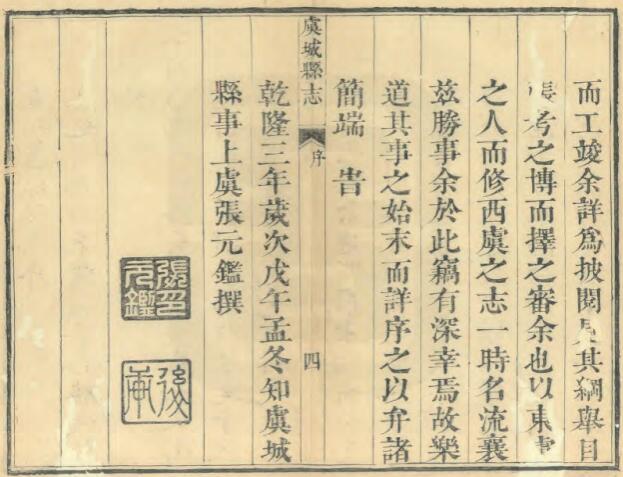 而工竣余詳爲披閱見其綱舉目
張考之博而擇之審余也以東虞
之人而修西虞之志一時名流襄
玆勝事余於此竊有深幸焉故樂
道其事之始末而詳序之以弁諸
簡端 旹
虞城縣志 序 四
乾隆三年歲次戊午孟冬知虞城
縣事上虞張元鑑撰
張元鑑印